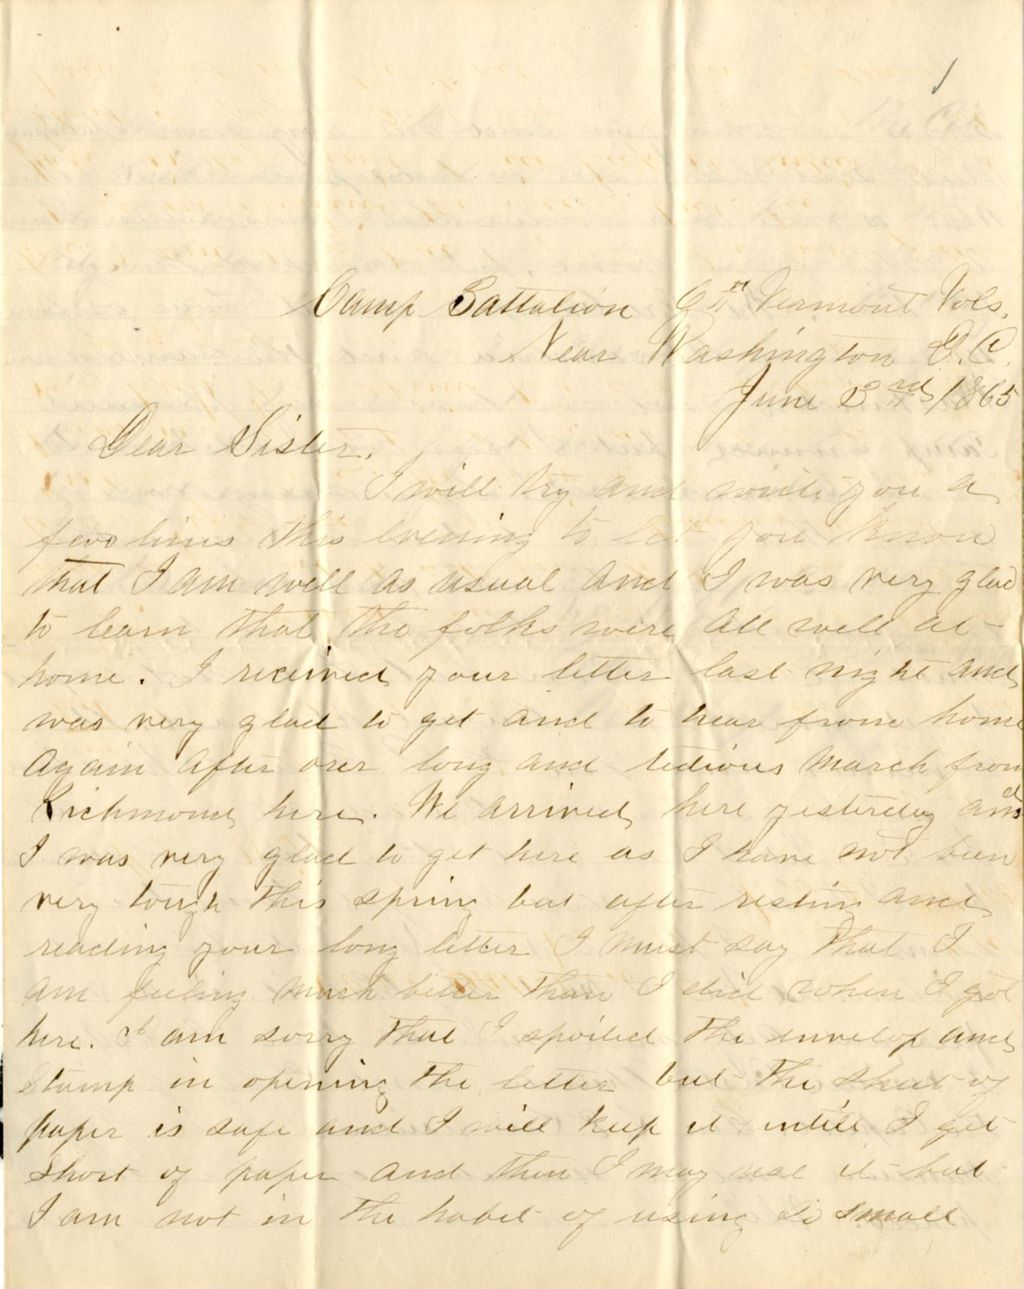 1
Camp Battalion 9th Vermont Vols,
Near Washington D.C.
June 2nd /1865
Dear Sister.
I will try and write you a
few lines this evening to let you know
that I am well as usual and I was very glad
to learn that the folks were all well at
home. I received your letter last night and
was very glad to get and to hear from home
again after over long and tedious march from
Richmond here. We arrived here yesterday and
I was very glad to get here as I have not been
very tough this spring but after resting and
reading your long letter I must say that I
am feeling much better than I did when I got
here. I am sorry that I spoiled the envelop and
Stamp in opening the letter but the sheet of
paper is safe and I will keep it intill I get
short of paper and then I may use it but
I am not in the habit of using so small